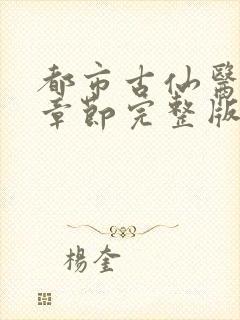 都市古仙醫
章節完整版
楊奎